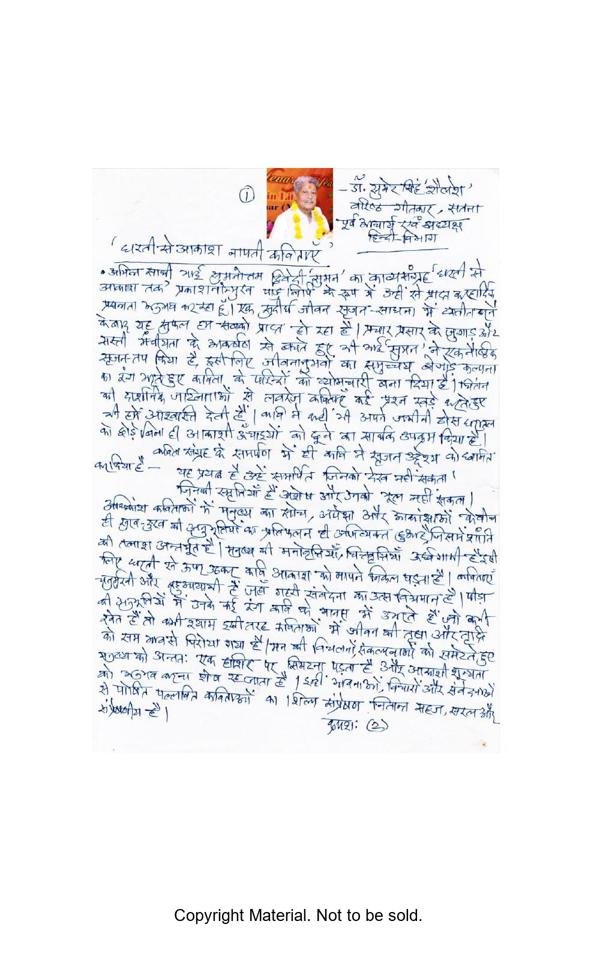 ①
– डॉ. सुमेर सिंह 'शैलेश'
वरिष्ठ गीतकार, सतना
पूर्व आचार्य एवं अध्यक्ष
हिन्दी विभाग
'धरती से आकाश नापती कविताएँ'
भाई द्विवेदी 'सुमन' का काव्यसंग्रह 'धरती से
आकाश तक' के रूप में उन्हीं से प्राप्त कर हार्दिक
प्रसन्नता अनुभव कर रहा हूँ। एक सुदीर्घ जीवन सृजन-साधना में
यह सुफल हम सबको प्राप्त हो रहा है। प्रचार प्रसार के जुगाड़ और
सस्ती के आकर्षण से बचते हुए भी भाई 'सुमन' ने एक नैष्ठिक
सृजन-तप किया है इसीलिए जीवनानुभवों का समुच्चय कल्पना
का रंग भरते हुए कविता के को व्योमचारी बना दिया है। चिंतन
की दार्शनिक से लवरेज कविताएँ कई प्रश्न खड़े करते हुए
भी हमें आश्वस्ति देती हैं। कवि ने कहीं भी अपने जमीनी ठोस धरातल
को छोड़े बिना ही आकाशी ऊँचाइयों को छूने का सार्थक उपक्रम किया है।
कविता संग्रह के समर्पण में ही कवि ने सृजन उद्देश्य को ध्वनित
कर दिया है –
यह प्रयत्न है उन्हें समर्पित जिनको देख नहीं सकता।
जिनकी स्मृतियाँ हैं अशेष और उनको भूल नहीं सकता।
अधिकांश कविताओं में मनुष्य का सोच, अपेक्षा और आकांक्षाओं के बीच
ही सुख-दुख की अनुभूतियों का प्रतिफलन ही अभिव्यक्त हुआ है, जिसमें शांति
की तलाश अन्तर्भूत है। मनुष्य की मनोवृत्तियाँ, चित्तवृत्तियाँ ऊर्ध्वगामी हैं इसी
लिए धरती से ऊपर उठकर कवि आकाश को मापने निकल पड़ता है। कविताएँ
और बहुआयामी हैं जहाँ गहरी संवेदना का उत्स विद्यमान है। पीड़ा
की अनुभूतियों में उनके कई रंग कवि के मानस में उभरते हैं जो कभी
श्वेत हैं तो कभी श्याम इसी तरह कविताओं में जीवन की तृषा और तृप्ति
को सम भाव से पिरोया गया है। मन की को समेटते हुए
मनुष्य को अन्ततः एक हाशिए पर सिमटना पड़ता है और आकाशी शून्यता
को अनुभव करना शेष रह जाता है। इन्हीं भावनाओं, विचारों और संवेदनाओं
से पोषित पल्लवित कविताओं का शिल्प संप्रेषण नितान्त सहज, सरल और
संप्रेषणीय है।
क्रमशः (2)
Copyright Material. Not to be sold.